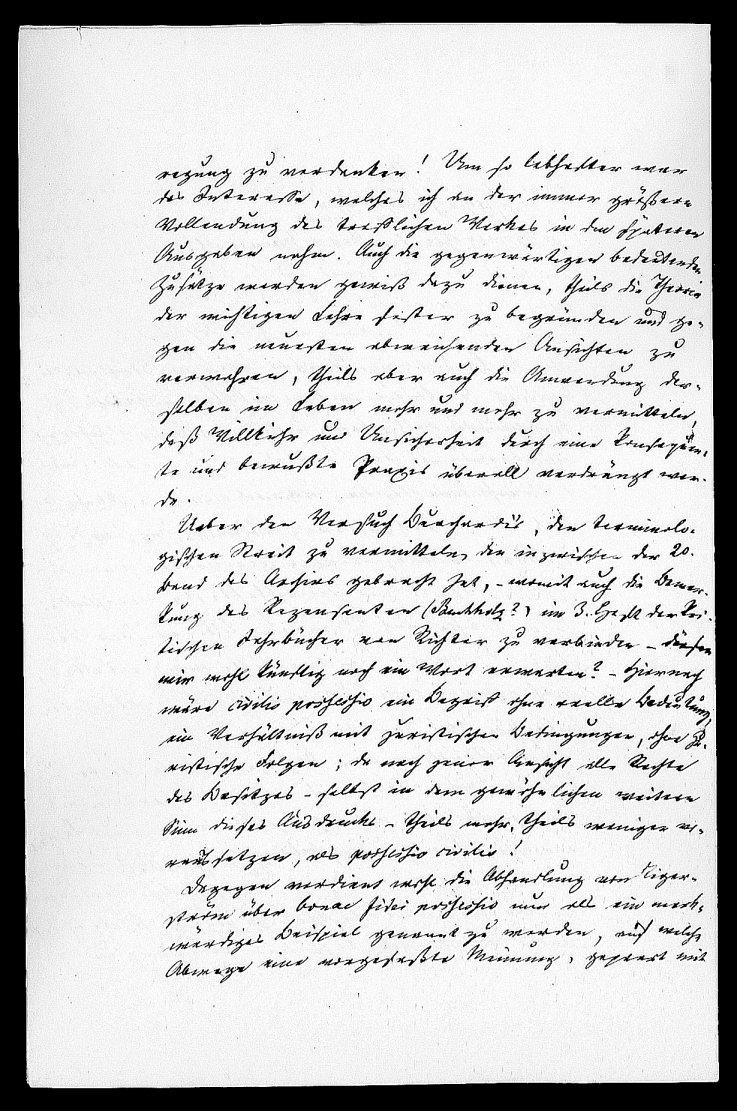 regung zu verdanken! Um so lebhafter war
das Interesse, welches ich an der immer größern
Vollendung des trefflichen Werkes in den spätern
Ausgaben nahm. Auch die gegenwärtigen bedeutenden
Zusätze werden gewiß dazu dienen, theils die Theorie
der wichtigen Lehre fester zu begründen und ge-
gen die neuesten abweichenden Ansichten zu
verwahren, theils aber auch die Anwendung der-
selben im Leben mehr und mehr zu vermitteln,
daß Willkühr und Unsicherheit durch eine konsequen-
te und bewußte Praxis überall verdrängt wer-
de.
Ueber den Versuch Burchardis, den terminolo-
gischen Streit zu vermitteln, den inzwischen der 20.
Band des Archivs gebracht hat, – womit auch die Bemer-
kung des Rezensenten (Buchholtz?) im 3. Heft der Kri-
tischen Jahrbücher von Richter zu verbinden – dürfen
wir wohl künftig noch ein Wort erwarten? – Hiernach
wäre civilis possessio ein Begriff ohne reelle Bedeutung,
ein Verhältniß mit juristischen Bedingungen, ohne ju-
ristische Folgen; da nach jener Ansicht alle Rechte
des Besitzes – selbst in dem gewöhnlichen weitern
Sinn dieses Ausdrucks – theils mehr, theils weniger vo-
raussetzen, als possessio civilis!
Dagegen verdient wohl die Abhandlung von Tiger-
ström über bonae fidei possessio nur als ein merk-
würdiges Beispiel genannt zu werden, auf welche
Abwege eine vorgefaßte Meinung, gepaart mit